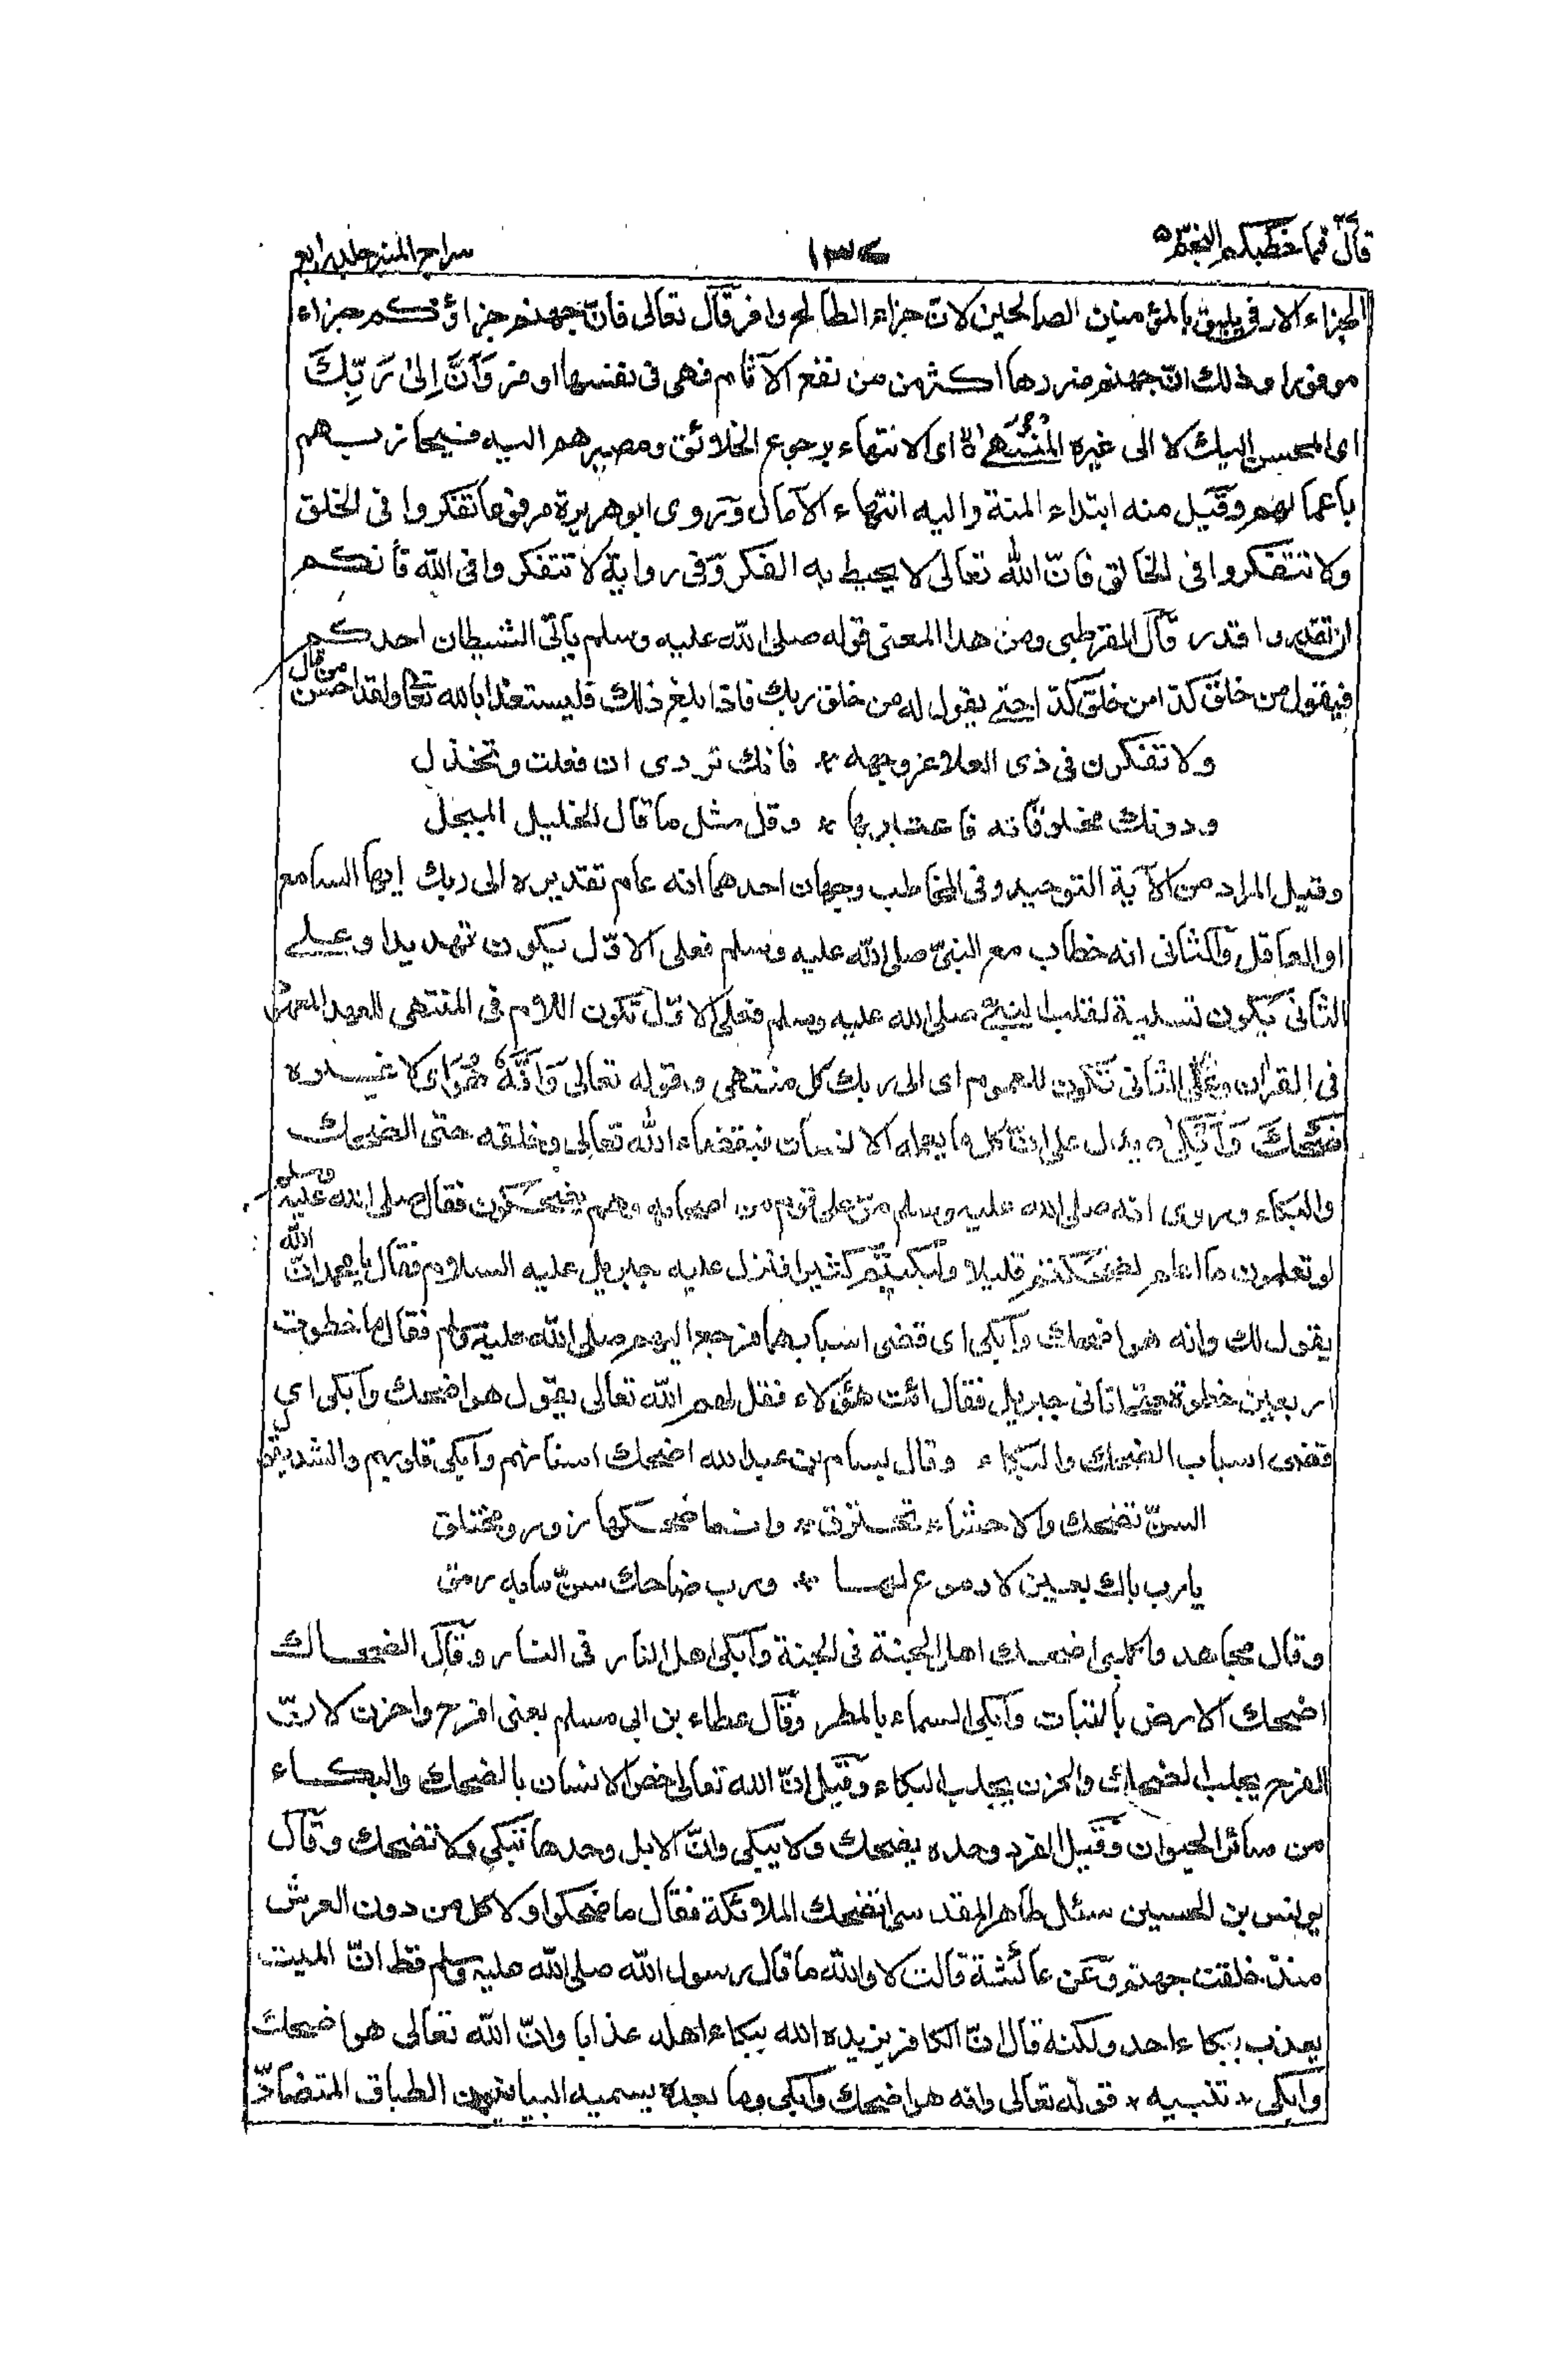 قال فما خطبكم النجم ٥
١٣٤
سراج المنير جلد رابع
الجزاء الاوفى يليق بالمؤمنين الصالحين لان جزاء الطالح وافر قال تعالى فان جهنم جزاؤكم جزاء
موفورا وذلك ان جهنم ضررها اكثر من نفع الآثام فهى فى نفسها اوفر وَاَنَّ اِلىٰ رَبِّكَ
اى المحسن اليك لا الى غيره المُنْتَهىٰ اى الانتهاء برجوع الخلائق ومصيرهم اليه فيجازيهم
باعمالهم وقيل منه ابتداء المنة واليه انتهاء الآمال وروى ابو هريرة مرفوعا تفكروا فى الخلق
ولا تتفكروا فى الخالق فانّ الله تعالى لا يحيط به الفكر وفى رواية لا تتفكروا فى الله فانكم
لن تقدروا قدر قال القرطبى ومن هذا المعنى قوله صلى الله عليه وسلم يأتى الشيطان احدكم
فيقول من خلق كذا من خلق كذا حتى يقول له من خلق ربك فاذا بلغ ذلك فليستعذ بالله تعا ولقد احسن من قال
ولا تفكرن فى ذى العلا عز وجهه * فانك تردى ان فعلت وتخذل
ودونك مخلوقاته فاعتبر بها * وقل مثل ما قال الخليل المبجل
وقيل المراد من الآية التوحيد وفى المخاطب وجهان احدهما انه عام تقديره الى ربك ايها السامع
او العاقل والثانى انه خطاب مع النبىّ صلى الله عليه وسلم فعلى الاوّل يكون تهديدا وعلى
الثانى يكون تسلية لقلب النبىّ صلى الله عليه وسلم فعلى الاوّل تكون اللام فى المنتهى للعهد المعهود
فى القرآن وعلى الثانى تكون للعموم اى الى ربك كل منتهى وقوله تعالى وَاَنَّهُ هُوَ اى لا غيره
اَضْحَكَ وَاَبْكىٰ يدل على انّ كل ما يعمله الانسان فبقضاء الله تعالى وخلقه حتى الضحك
والبكاء وروى انه صلى الله عليه وسلم مرّ على قوم من اصحابه وهم يضحكون فقال صلى الله عليه وسلم
لو تعلمون ما اعلم لضحكتم قليلا ولبكيتم كثيرا فنزل عليه جبريل عليه السلام فقال يا محمد انّ الله
يقول لك وانه هو اضحك وابكى اى قضى اسبابهما فرجع اليهم صلى الله عليه وسلم فقال ما خطوت
اربعين خطوة حتى اتانى جبريل فقال ائت هؤلاء فقل لهم الله تعالى يقول هو اضحك وابكى اى
قضى اسباب الضحك والبكاء وقال بسام بن عبد الله اضحك اسنانهم وابكى قلوبهم وانشد يقول
السنّ تضحك والاحشاء تحترق * وانما ضحكها زور ومختلق
يا رب باك بعين لا دموع لها * ورب ضاحك سنّ ما به رمق
وقال مجاهد والكلبى اضحك اهل الجنة فى الجنة وابكى اهل النار فى النار وقال الضحاك
اضحك الارض بالنبات وابكى السماء بالمطر وقال عطاء بن ابى مسلم يعنى افرح واحزن لانّ
الفرح يجلب الضحك والحزن يجلب البكاء وقيل انّ الله تعالى خص الانسان بالضحك والبكاء
من سائر الحيوان وقيل القرد وحده يضحك ولا يبكى وانّ الابل وحدها تبكى ولا تضحك وقال
يونس بن الحسين سئل طاهر المقدسى اتضحك الملائكة فقال ما ضحكوا ولا كل من دون العرش
منذ خلقت جهنم وعن عائشة قالت لا والله ما قال رسول الله صلى الله عليه وسلم قط انّ الميت
يعذب ببكاء احد ولكنه قال انّ الكافر يزيده الله ببكاء اهله عذابا وانّ الله تعالى هو اضحك
وابكى * تنبيه * قوله تعالى وانه هو اضحك وابكى وما بعده يسميه البيانيون الطباق المتضادّ